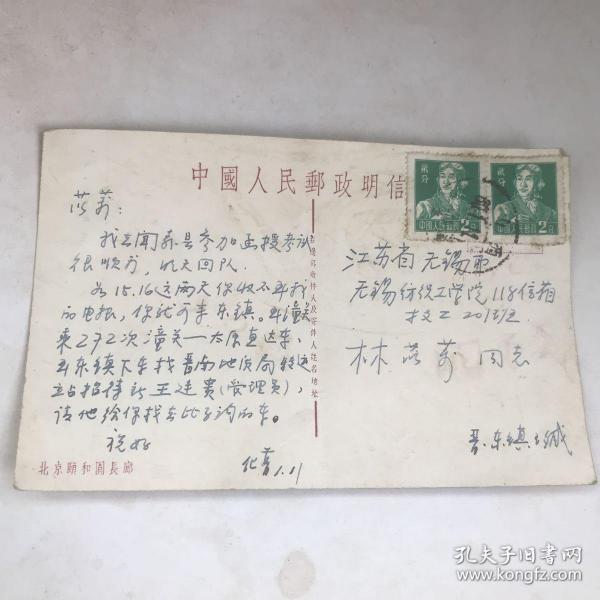 中國人民郵政明信
茂莉：
我去闻喜县参加函授考试
很顺利，明天回队。
如15.16这两天你收不到我
的电报，你就可来东镇。
乘272次潼关—太原直达车，
到东镇下车找晋南地质局转运
站招待所王连贵(管理员)，
请他给你找去此子沟的车。
祝好
化 1.11
北京頤和園長廊
贰分
中国人民邮政
2分
贰分
中国人民邮政
2分
江苏省无锡市
无锡纺织工学院118信箱
技工201班
林茂莉同志
晋.东镇
孔夫子旧书网
www.kongfz.com